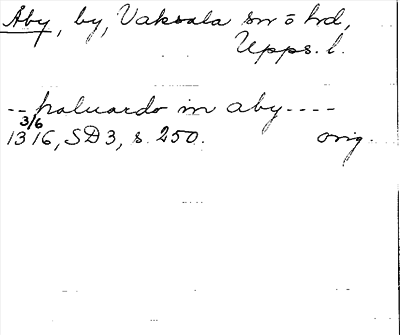 Åby, by, Vaksala sn ö hd,
Upps. l.
-- paluardo in aby ----
1316, 3/6 SD 3, s. 250. orig.